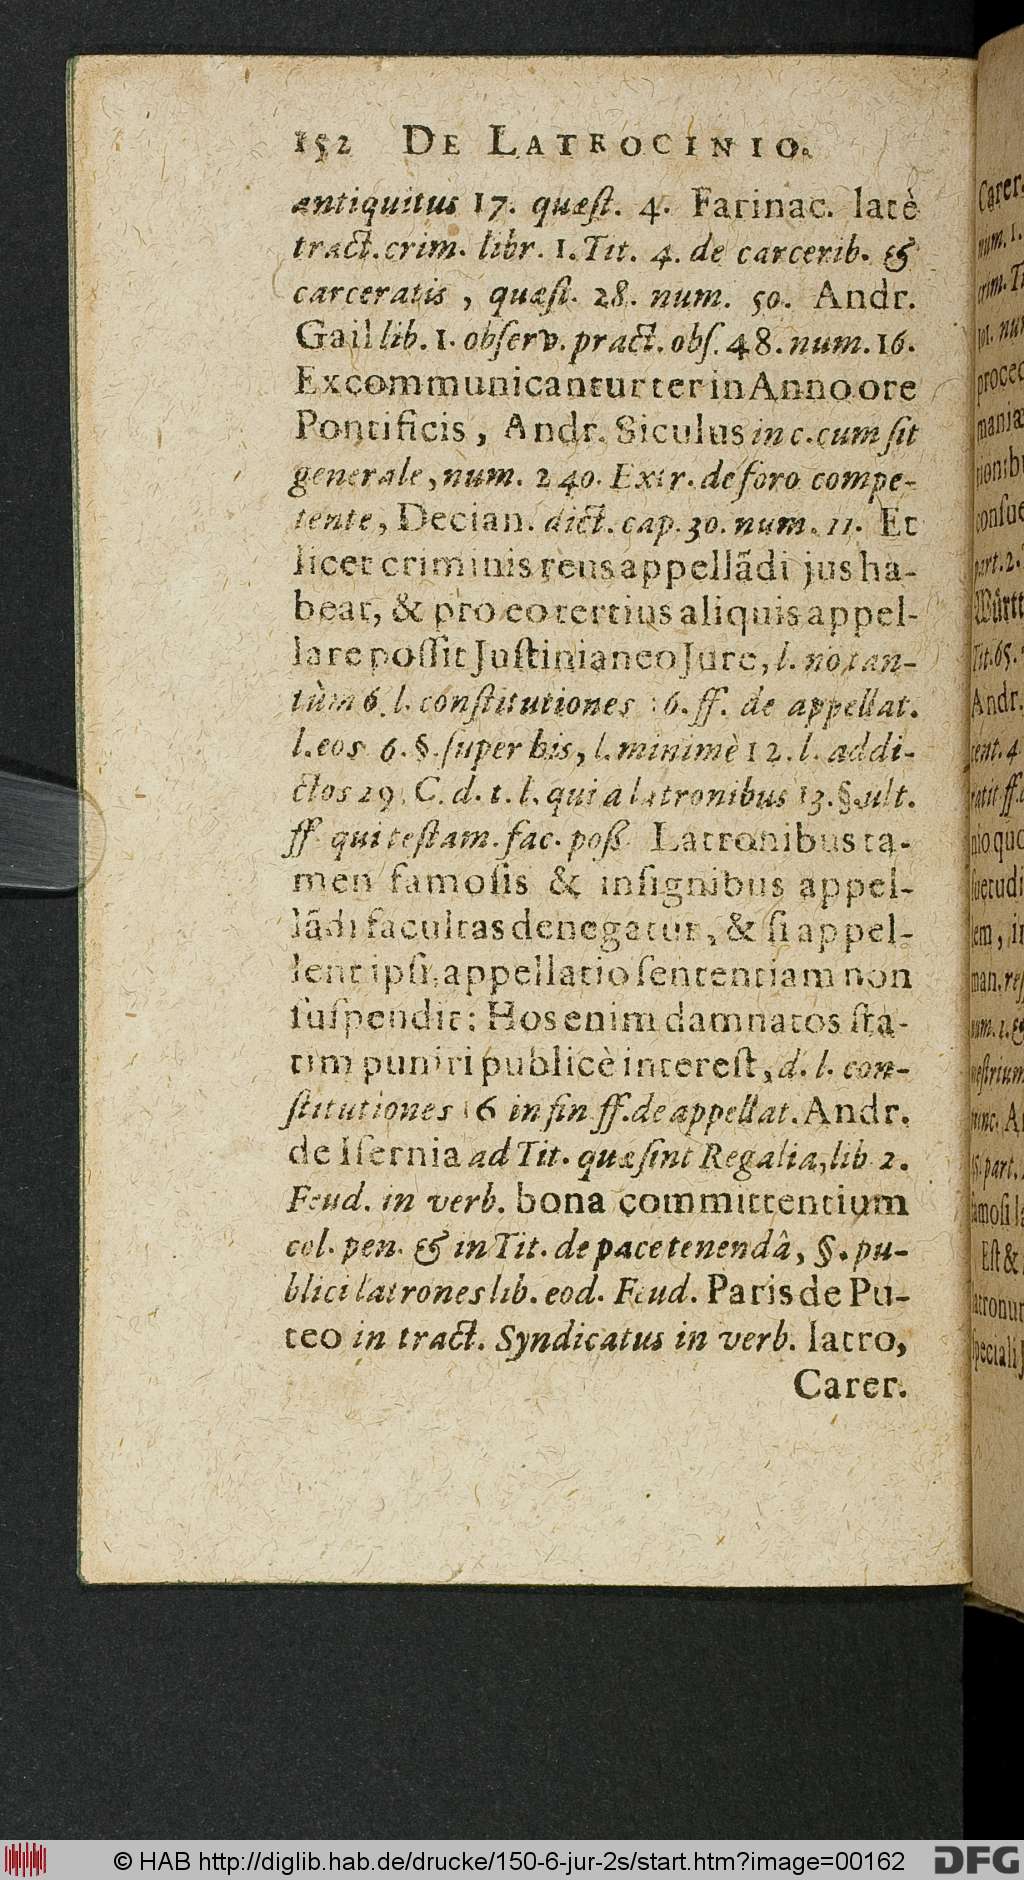 152 DE LATROCINIO.
antiquitus 17. quæst. 4. Farinac. latè
tract. crim. libr. 1. Tit. 4. de carcerib. &
carceratis, quæst. 28. num. 50. Andr.
Gail lib. 1. observ. pract. obs. 48. num. 16.
Excommunicantur ter in Anno ore
Pontificis, Andr. Siculus in c. cum sit
generale, num. 240. Extr. de foro compe-
tente, Decian. dict. cap. 30. num. 11. Et
licet criminis reus appellãdi jus ha-
beat, & pro eo tertius aliquis appel-
lare possit Justinianeo Jure, l. non tan-
tùm 6. l. constitutiones 16. ff. de appellat.
l. eos 6. §. super his, l. minimè 12. l. addi-
ctos 29. C. d. t. l. qui a latronibus 13. §. ult.
ff. qui testam. fac. poß. Latronibus ta-
men famosis & insignibus appel-
lãdi facultas denegatur, & si appel-
lent ipsi, appellatio sententiam non
suspendit: Hos enim damnatos sta-
tim puniri publicè interest, d. l. con-
stitutiones 16 in fin ff. de appellat. Andr.
de Isernia ad Tit. quæ sint Regalia, lib 2.
Feud. in verb. bona committentium
col. pen. & in Tit. de pace tenendâ, §. pu-
blici latrones lib. eod. Feud. Paris de Pu-
teo in tract. Syndicatus in verb. latro,
Carer.
Carer.
num. 1.
part. 2.
Tit. 65.
Andr.
Est &
© HAB http://diglib.hab.de/drucke/150-6-jur-2s/start.htm?image=00162
DFG